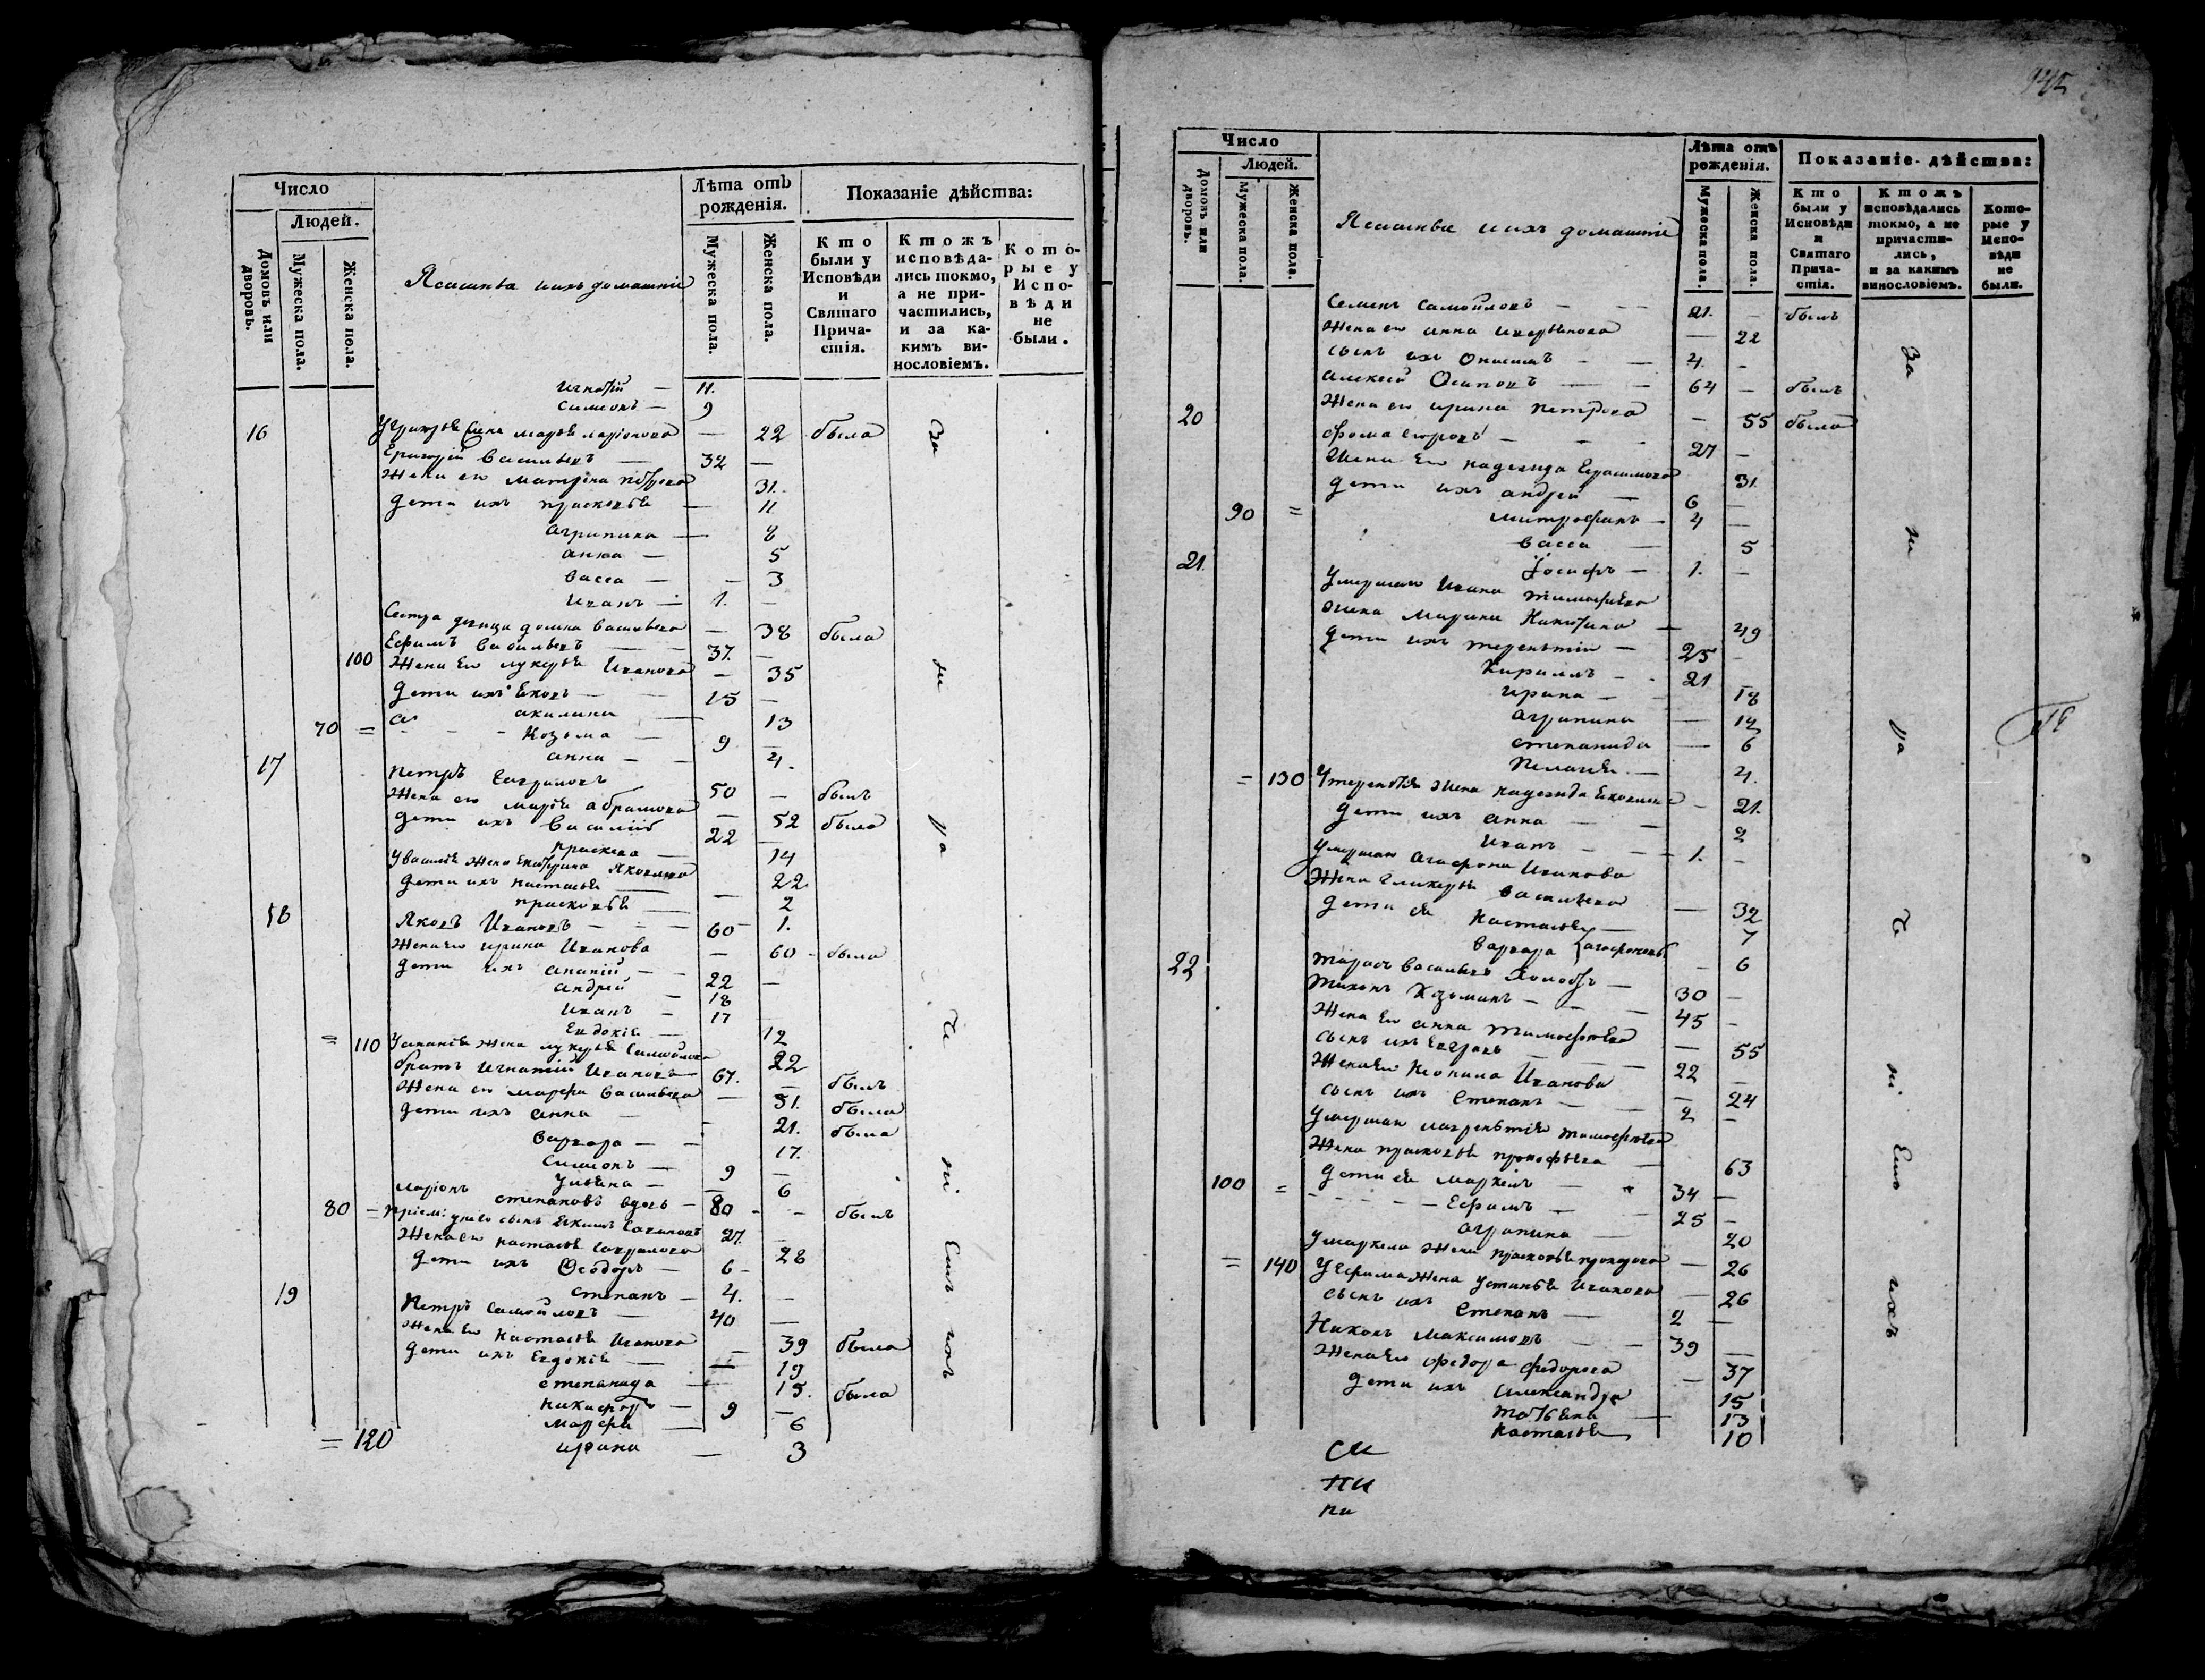 Число
Людей.
Домовъ или дворовъ.
Мужеска пола.
Женска пола.
Ясашныя и ихъ домашніе
Лѣта отъ рожденія.
Мужеска пола.
Женска пола.
Показаніе дѣйства:
Кто были у Исповѣди и Святаго Прича-стія.
Кто жъ исповѣда-лись токмо, а не при-частились, и за ка-кимъ ви-нословіемъ.
Кото-рые у Испо-вѣди не были.
Игнатій — 11.
Симеонъ — 9
16 жена марья ларіонова — 22 была
Григорій Васильевъ — 32 —
Жена его матрена петрова 31.
дети ихъ прасковья — 11
агрипина — 8
анна — 5
васса — — 3
Иванъ — 1. —
Сестра девица домна васильева — 38 была
Ефимъ Васильевъ — 37. —
100 Жена его лукерья Иванова — 35
дети ихъ — 15 —
акилина — 13
70 = Козьма — 9 —
анна — — 4.
17 Петръ 50 — былъ
Жена его марья абрамова — 52 была
дети ихъ Василій 22 —
14
У василья жена Екатерина Яковлева 22
дети ихъ настасья — — 2
прасковья — 1.
18 Яковъ Ивановъ — — — 60 —
Жена его ирина Иванова — 60 — была
дети ихъ ананій — 22 —
андрей — 18
Иванъ — 17
Евдокія — 12
= 110 У ананія жена лукерья Самойлова 22
братъ Игнатій Ивановъ — 67. — былъ
Жена его марфа васильева — 51. была
дети ихъ анна — 21. была
варвара — — 17.
Симеонъ — 9 —
Ульяна — — 6
ларіонъ степановъ вдовъ — 80 - - былъ
80 = 27. —
Жена его настасья 28
дети ихъ Ѳеодоръ — 6 -
степанъ — 4. —
19 Петръ Самойловъ — 40 —
Жена его настасья Иванова — 39 была
дети ихъ Евдокія — — 19
степанида — 15. была
никифоръ — 9 —
марфа — 6
= 120 ирина — 3
за
не
ра
че
ні
Емъ
ихъ
945
Число
Людей.
Домовъ или дворовъ.
Мужеска пола.
Женска пола.
Ясашныя и ихъ домашніе
Лѣта отъ рожденія.
Мужеска пола.
Женска пола.
Показаніе дѣйства:
Кто были у Исповѣди и Святаго Прича-стія.
Кто жъ исповѣдались токмо, а не причасти-лись, и за какимъ винословіемъ.
Кото-рые у Испо-вѣди не были.
Семенъ Самойловъ — — 21. — былъ
Жена его анна — 22
сынъ ихъ Онисимъ — — 4. -
алексей Осиповъ — — 64 — былъ
20 Жена его ирина петрова — 55 была
Ѳома — — — 27 —
Жена его надежда Герасимова 31.
дети ихъ андрей — 6 —
90 = митрофанъ — 4 —
васса — 5
21. Іосифъ — 1. —
Умершаго Ивана тимофеева
жена марина Никитина — 49
дети ихъ терентій — 25 —
Кирилъ — - 21 —
ирина — — 18
агрипина — 14
степанида — 6
Пелагея — 4.
= 130 У терентья жена надежда — 21.
дети ихъ анна — — 2
Иванъ — — 1. —
Умершаго агафона Иванова
Жена гликерья васильева — 32
дети ея настасья — 7
варвара агафоновы — 6
22 тарасъ васильевъ — 30 —
тихонъ Козьминъ — — 45 —
Жена его анна тимофеева — 55
сынъ ихъ — 22 —
Жена его неонила Иванова — 24
сынъ ихъ Степанъ — — 2 —
Умершаго лаврентія тимофеева
Жена прасковья прокофьева — 63
100 = дети ея маркелъ — 34 —
Ефимъ — — 25 —
агрипина — 20
У маркела жена прасковья — 26
= 140 У Ефима жена устинья Иванова — 26
сынъ ихъ Степанъ — 2 —
Никонъ максимовъ — — 39 —
Жена его федора федорова — 37
дети ихъ александра 15
татьяна — 13
настасья 10
за
не
ра
че
ні
Емъ
ихъ
си
пи
ка